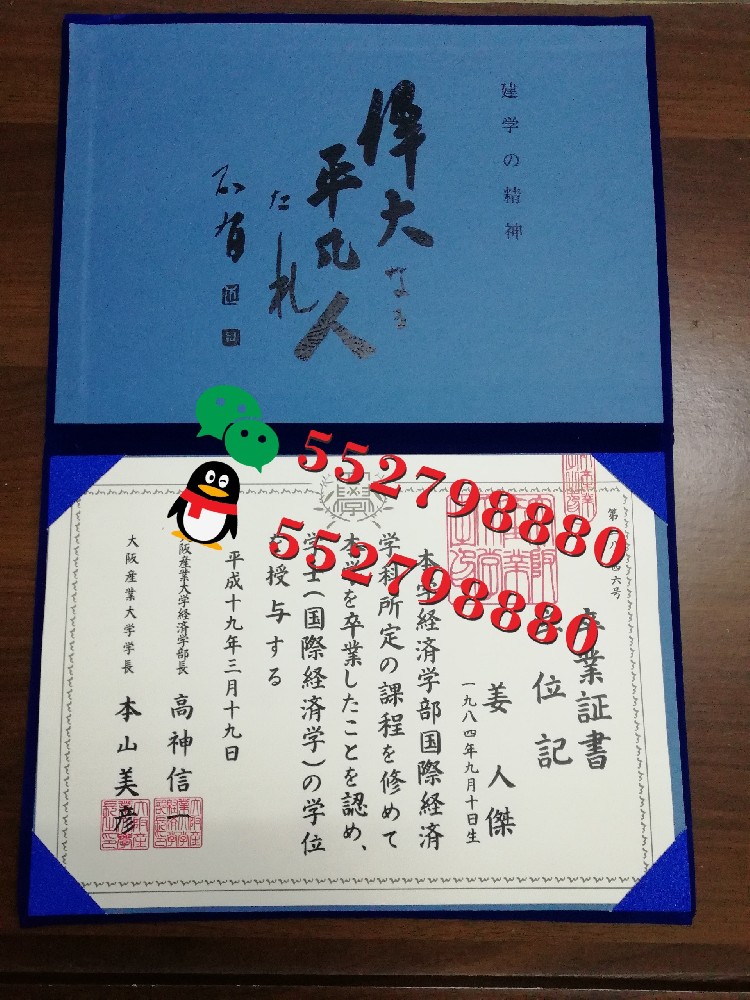 建学の精神
偉大なる
平凡人
たれ
552798880
552798880
卒業証書
位記
姜人傑
一九八四年九月十日生
本学経済学部国際経済
学科所定の課程を修めて
本学を卒業したことを認め、
学士(国際経済学)の学位
を授与する
平成十九年三月十九日
阪産業大学経済学部長 高神信一
大阪産業大学学長 本山美彦